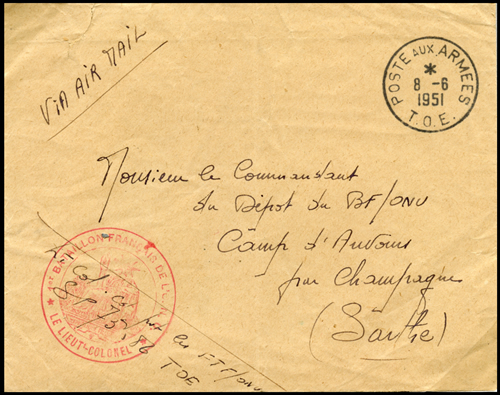 VIA AIR MAIL
POSTE AUX ARMEES
*
8 -6
1951
T.O.E.
Monsieur le Commandant
du Dépot du BF/ONU
Camp d'Auvours
par Champagné
(Sarthe)
BATAILLON FRANCAIS DE L'O.N.U.
LE LIEUT-COLONEL
TOE